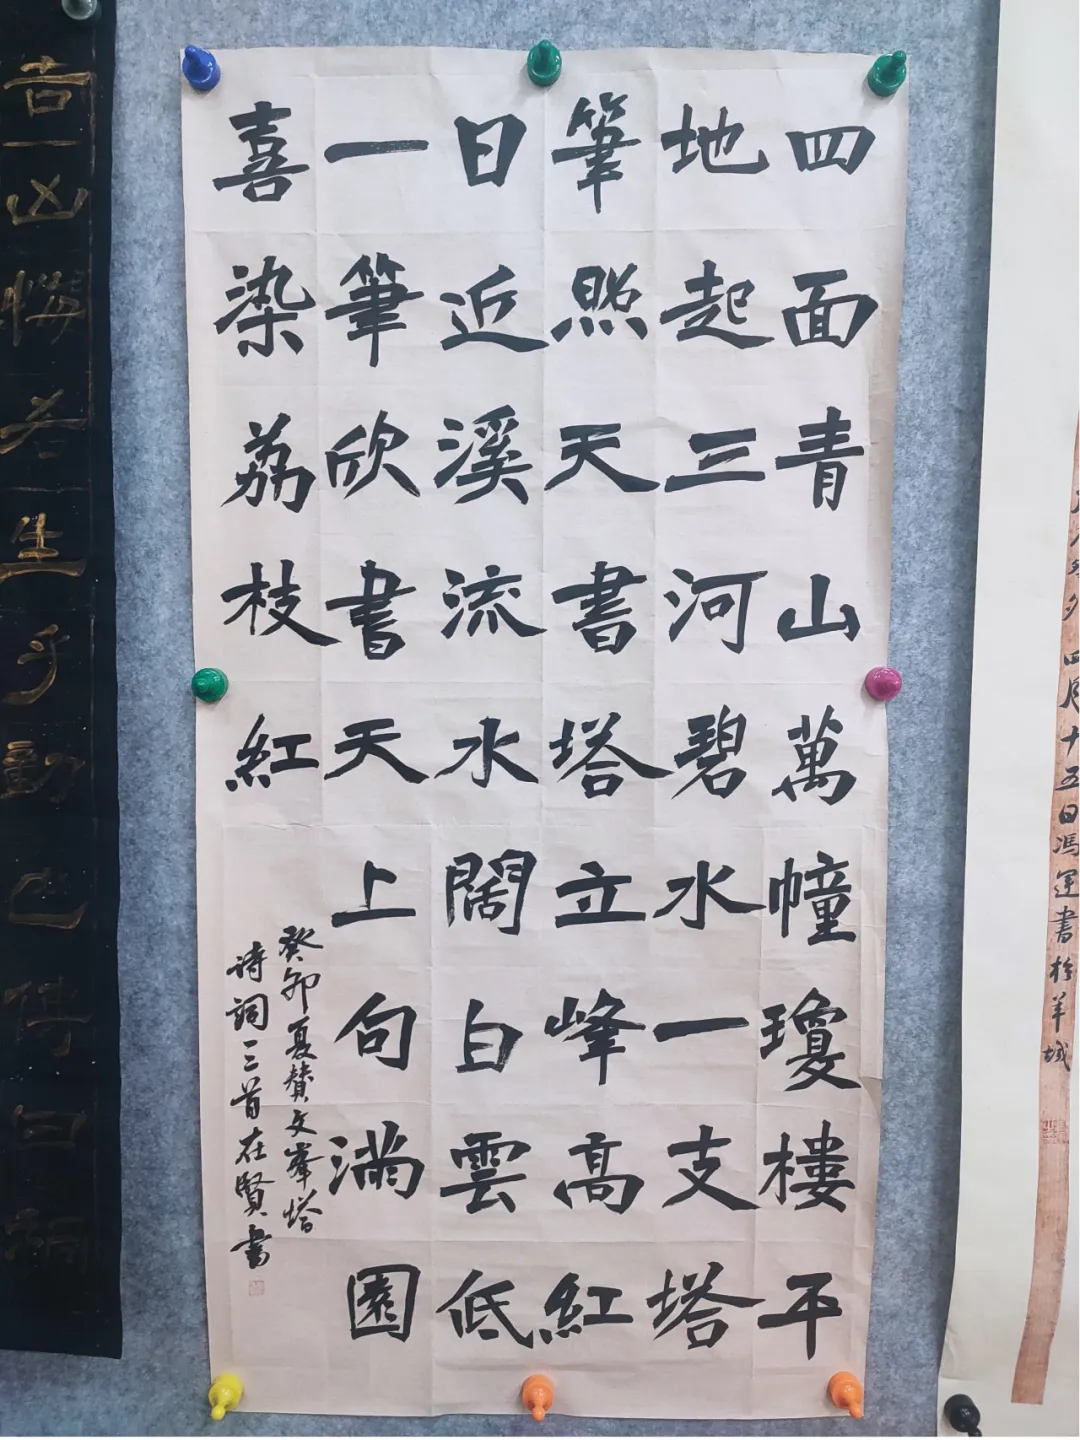 四月十五日馮運書於羊城
四面青山萬幢瓊樓平
地起三河碧水一支塔
筆照天書塔立峰高紅
日近溪流水闊白雲低
一筆欣書天上句滿園
喜染荔枝紅
癸卯夏賛文峯塔
诗词三首在賢書